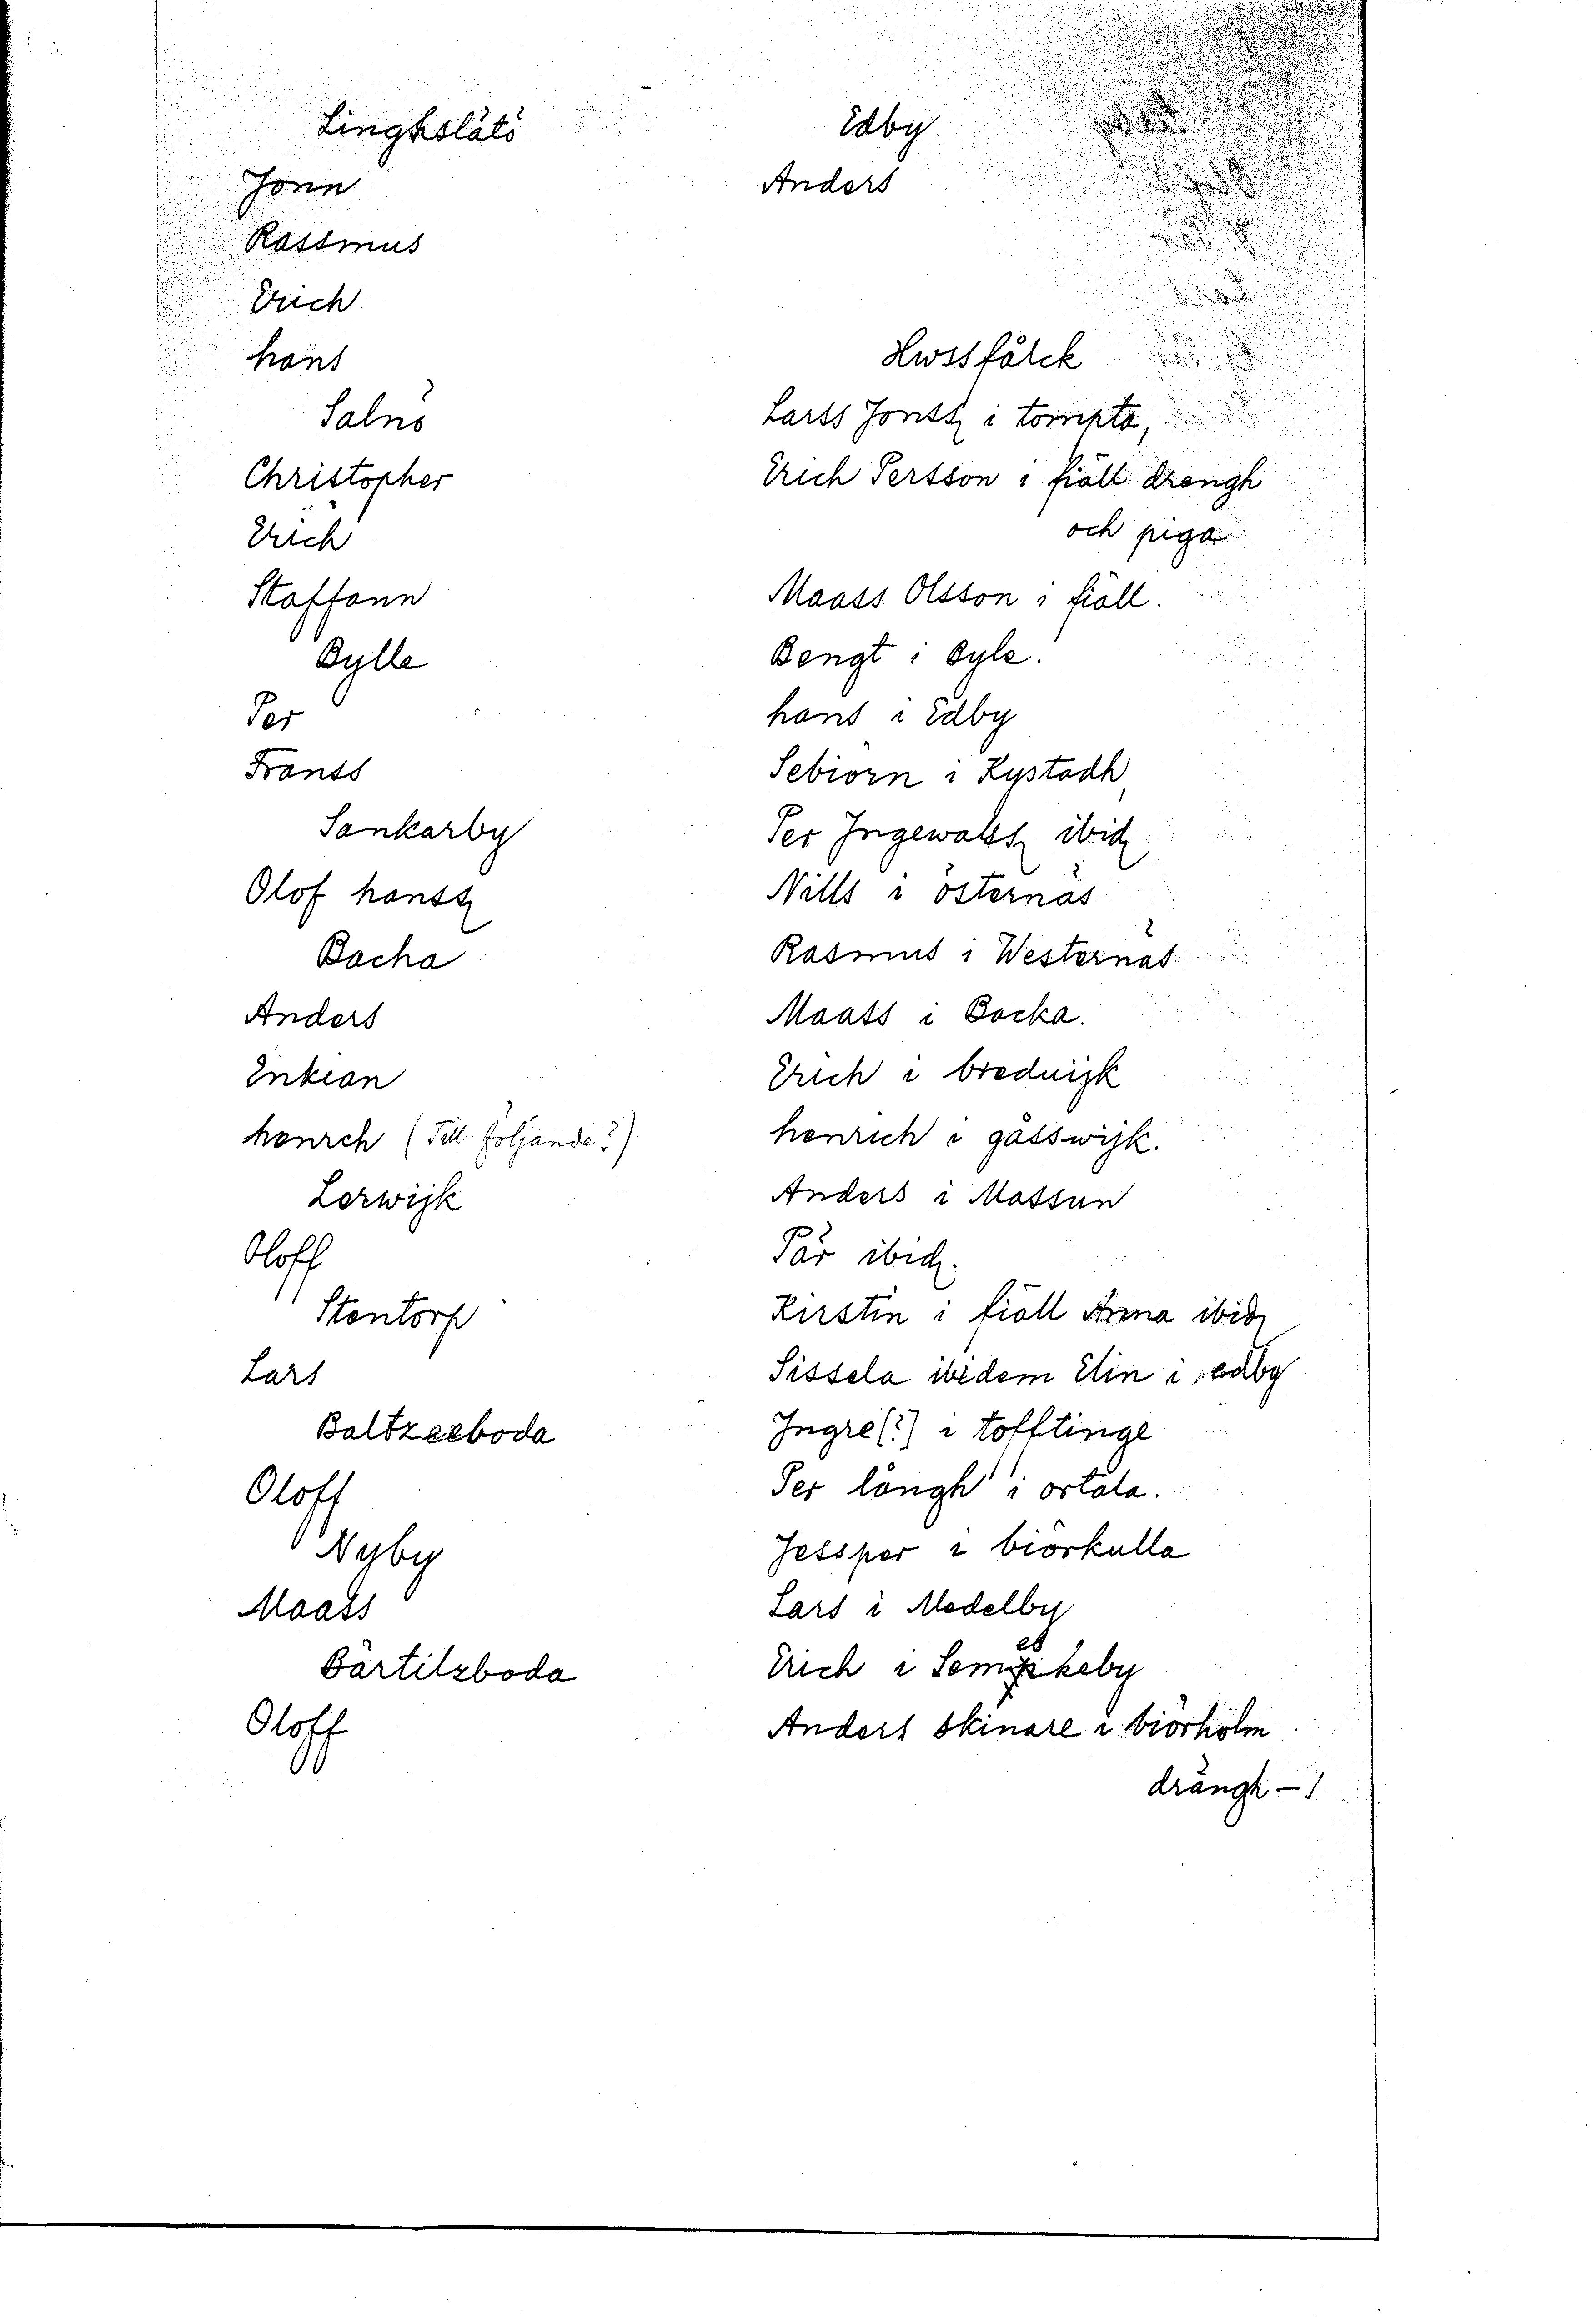 Linghslätö
Jonn
Rassmus
Erich
hans
Salnö
Christopher
Erich
Staffann
Bylle
Per
Franss
Sankarby
Olof hanssz
Bacha
Anders
Enkian
henrch (Till följande?)
Lerwijk
Oloff
Stentorp
Lars
Baltzeeboda
Oloff
Nyby
Maass
Bärtilzboda
Oloff
Edby
Anders
Hwssfålck
Larss Jonssz i tompta,
Erich Persson i fiäll drengh
och piga
Maass Olsson i fiäll.
Bengt i Byle.
hans i Edby
Sebiörn i Kystadh,
Per Jngewalssz ibidz
Nills i östernäs
Rasmus i Westernäs
Maass i Backa.
Erich i breduijk
henrich i gåsswijk.
Anders i Massun
Pär ibidz.
Kirstin i fiäll Anna ibidz
Sissela ibidem Elin i edby
Jngre[?] i tofftinge
Per långh i ortala.
Jessper i biörkulla
Lars i Medelby
es
Erich i Sempkeby
Anders skinare i biörholm
drängh - 1